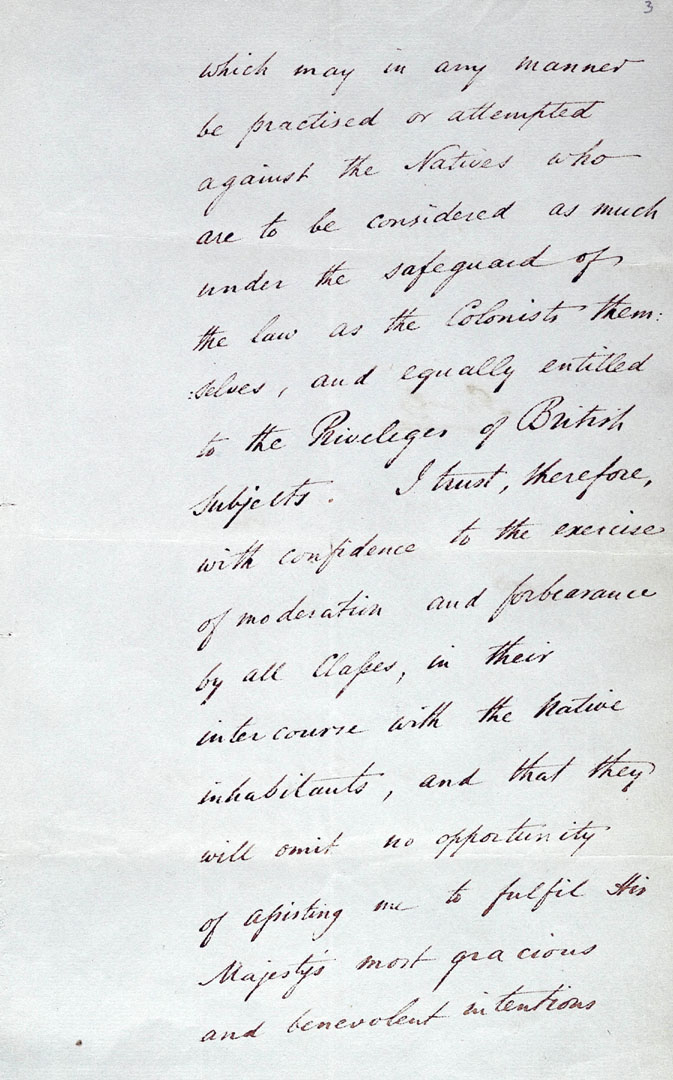 3
which may in any manner
be practised or attempted
against the Natives who
are to be considered as much
under the safeguard of
the law as the Colonists them:
:selves, and equally entitled
to the Priveleges of British
Subjects. I trust, therefore,
with confidence to the exercise
of moderation and forbearance
by all Claſses, in their
intercourse with the Native
inhabitants, and that they
will omit no opportunity
of aſsisting me to fulfil His
Majesty's most gracious
and benevolent intentions